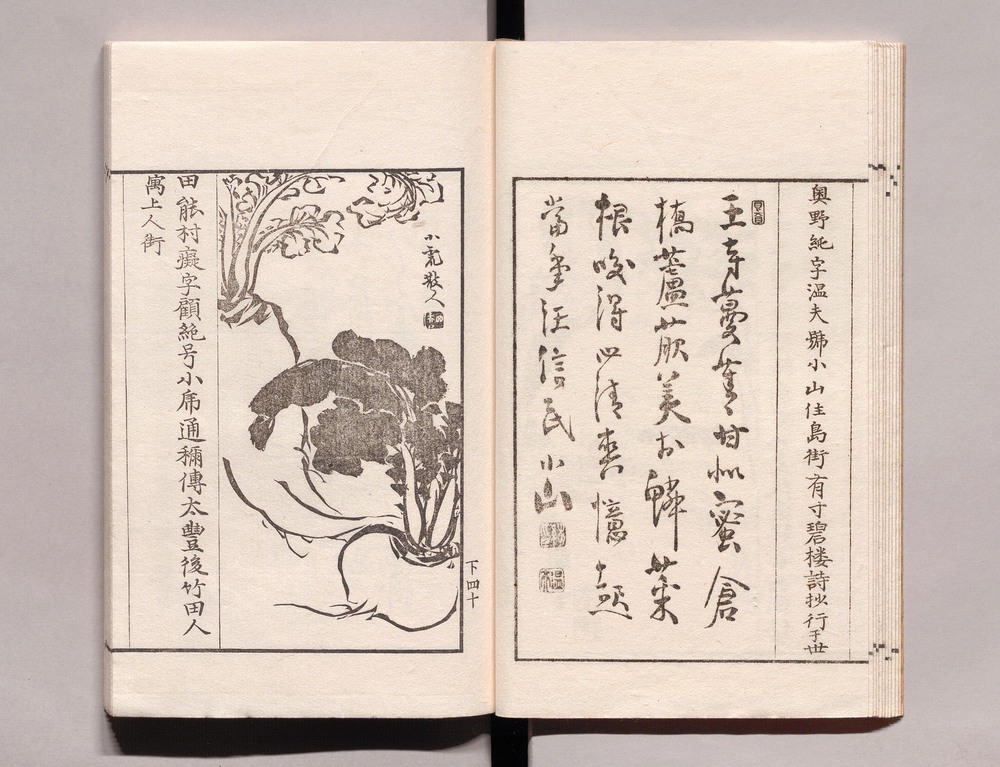 奥野純字温夫號小山住島街有寸碧楼詩抄行于世
王寺蔓菁甘似蜜倉
橋蘆菔美於鱗菜
根咬得清憶起
當年汪信民 小山
下四十
小乕散人
田能村癡字顧絶号小乕通稱傳太豐後竹田人
寓上人街